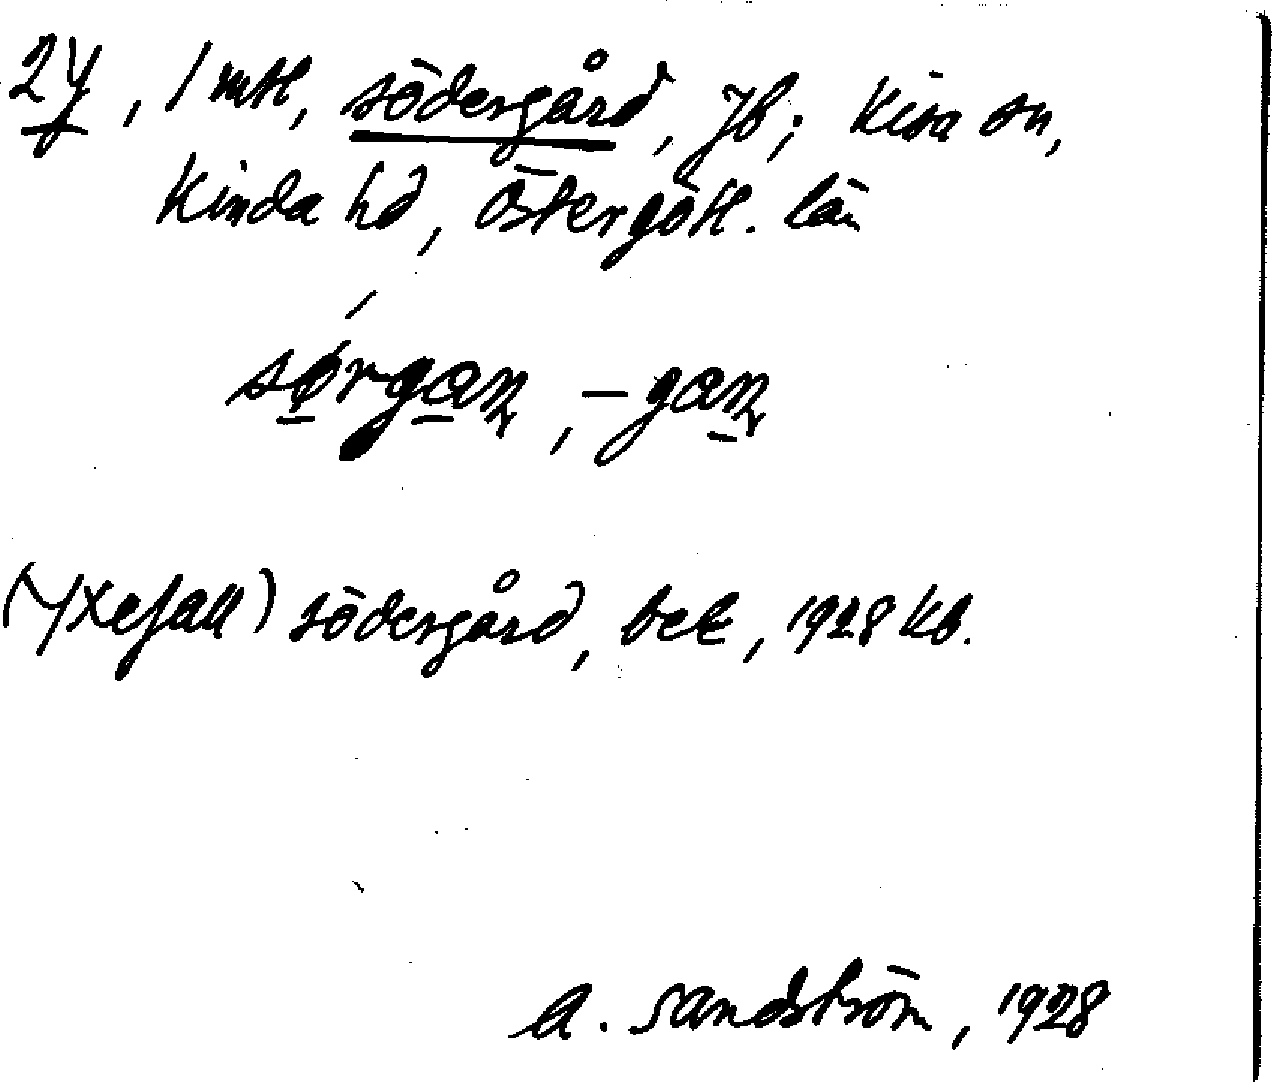 24, 1 mtl, södergård, Jb; Kisa sn,
Kinda hd, Östergötl. län
sørgan, -gan
(Yxefall) södergård, bet, 1928 Kb.
A. Sandström, 1928